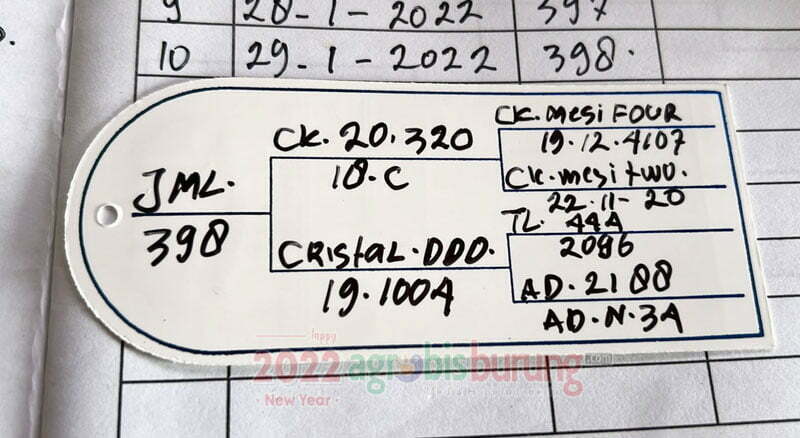 9 28-1-2022 397
10 29-1-2022 398.
JML.
398
CK. 20.320
18.C
CRistaL.DDD.
19.100A
CK.mesi FOUR
19.12.4107
CK.mesi two.
22.11-20
TL. 44A
2086
AD.2188
AD.N.3A
happy
2022 agrobisburung.com
New Year